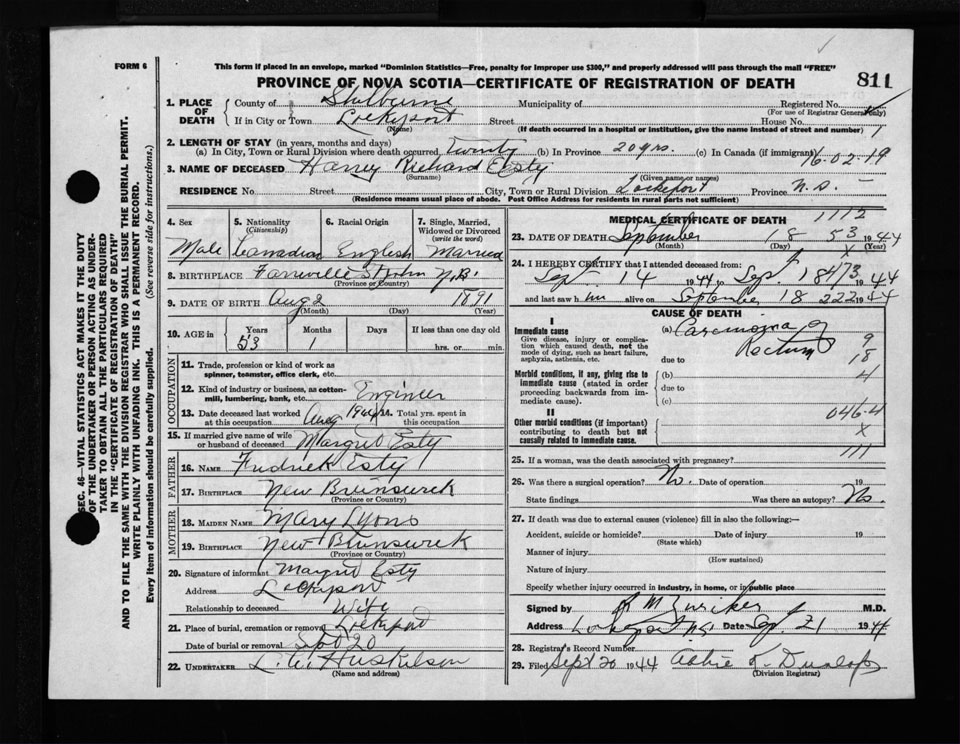 FORM 6
This form if placed in an envelope, marked "Dominion Statistics—Free, penalty for improper use $300," and properly addressed will pass through the mail "FREE"
PROVINCE OF NOVA SCOTIA—CERTIFICATE OF REGISTRATION OF DEATH
811
1. PLACE OF DEATH County of Shelburne Municipality of Registered No. (For use of Registrar General only)
If in City or Town Lockeport (Name) Street House No.
(If death occurred in a hospital or institution, give the name instead of street and number)
2. LENGTH OF STAY (in years, months and days)
(a) In City, Town or Rural Division where death occurred twenty (b) In Province 20 yrs. (c) In Canada (if immigrant) 16-02-19
3. NAME OF DECEASED Harry Richard Esty
(Surname) (Given name or names)
RESIDENCE No. Street City, Town or Rural Division Lockeport Province N.S.
(Residence means usual place of abode. Post Office Address for residents in rural parts not sufficient)
4. Sex Male
5. Nationality (Citizenship) Canadian
6. Racial Origin English
7. Single, Married, Widowed or Divorced (write the word) Married
8. BIRTHPLACE Fairville St John N.B.
(Province or Country)
9. DATE OF BIRTH Aug 2 1891
(Month) (Day) (Year)
10. AGE in Years 53 Months 1 Days If less than one day old hrs. or min.
OCCUPATION
11. Trade, profession or kind of work as spinner, teamster, office clerk, etc.
12. Kind of industry or business, as cotton-mill, lumbering, bank, etc. Engineer
13. Date deceased last worked at this occupation Aug 19 14. Total yrs. spent in this occupation
15. If married give name of wife or husband of deceased Margret Esty
FATHER
16. NAME Fredrick Esty
17. BIRTHPLACE New Brunswick
(Province or Country)
MOTHER
18. MAIDEN NAME Mary Lyons
19. BIRTHPLACE New Brunswick
(Province or Country)
20. Signature of informant Margret Esty
Address Lockeport
Relationship to deceased Wife
21. Place of burial, cremation or removal Lockeport
Date of burial or removal Sept 20
22. UNDERTAKER Huskilson
(Name and address)
MEDICAL CERTIFICATE OF DEATH 1112
23. DATE OF DEATH September 18 53 1944
(Month) (Day) (Year)
X
24. I HEREBY CERTIFY that I attended deceased from:
Sept 14 1944 to Sept 18 473 1944
and last saw him alive on September 18 222 1944
CAUSE OF DEATH
I
Immediate cause
Give disease, injury or complication which caused death, not the mode of dying, such as heart failure, asphyxia, asthenia, etc.
(a) Carcinoma of Rectum
due to
9
18
4
Morbid conditions, if any, giving rise to immediate cause (stated in order proceeding backwards from immediate cause).
(b)
due to
(c)
II
Other morbid conditions (if important) contributing to death but not causally related to immediate cause.
046-4
X
111
25. If a woman, was the death associated with pregnancy?
26. Was there a surgical operation? No. Date of operation 19
State findings Was there an autopsy? No.
27. If death was due to external causes (violence) fill in also the following:—
Accident, suicide or homicide? Date of injury 19
(State which)
Manner of injury
(How sustained)
Nature of injury
Specify whether injury occurred in industry, in home, or in public place
Signed by M.D.
Address Lockeport N.S. Date Sept. 21 1944
28. Registrar's Record Number
29. Filed Sept 20 1944 K. Dunlop
(Division Registrar)
SEC. 46—VITAL STATISTICS ACT MAKES IT THE DUTY
OF THE UNDERTAKER OR PERSON ACTING AS UNDERTAKER TO OBTAIN ALL THE PARTICULARS REQUIRED
IN THE "CERTIFICATE OF REGISTRATION OF DEATH"
AND TO FILE THE SAME WITH THE DIVISION REGISTRAR WHO SHALL ISSUE THE BURIAL PERMIT.
WRITE PLAINLY WITH UNFADING INK. THIS IS A PERMANENT RECORD.
Every item of information should be carefully supplied. (See reverse side for instructions.)